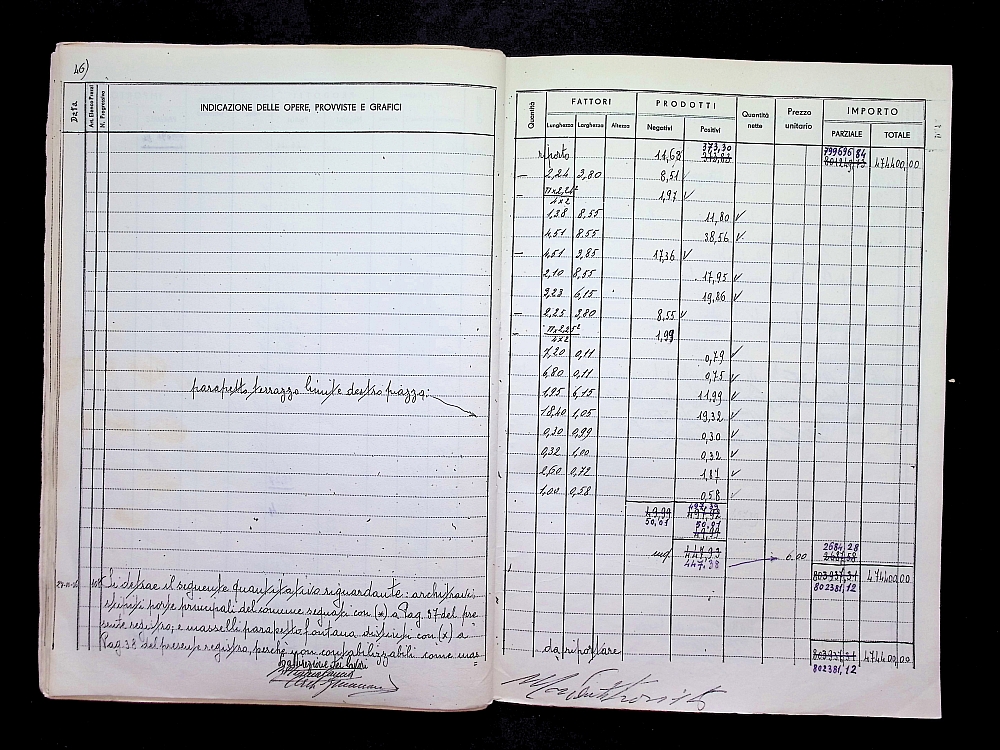 46)
Data
Art. Elenco Prezzi
N. Progressivo
INDICAZIONE DELLE OPERE, PROVVISTE E GRAFICI
parapetto terrazzo limite destro piazza:
Si detrae il seguente quantitativo riguardante: architravi
stipiti porte principali del comune segnati con (x) a Pag. 37 del pre
sente registro; e masselli parapetto fontana distinti con (x) a
Pag. 38 del presente registro, perchè non contabilizzabili come mas=
Quantità FATTORI PRODOTTI Quantità nette Prezzo unitario IMPORTO
Lunghezza Larghezza Altezza Negativi Positivi PARZIALE TOTALE
373,30 799696,84
riporto 11,62 474400,00
— 2,24 3,80 8,51 ✓
— π×2,24² / 4×2 1,97 ✓
1,38 8,55 11,80 ✓
4,51 8.55 38,56 ✓
— 4,51 3,85 17,36 ✓
2,10 8,55 17,95 ✓
3,23 6,15 19,86 ✓
— 2,25 3,80 8,55 ✓
— π×2,25² / 4×2 1,99
7,20 0,11 0,79 ✓
6,80 0,11 0,75 ✓
1,95 6,15 11,99 ✓
18,40 1,05 19,32 ✓
0,30 0,99 0,30 ✓
0,32 1,00 0,32 ✓
2,60 0,72 1,87 ✓
1,00 0,58 0,58 ✓
497,39
49,99 497,92
50,01 50,01
49,99
2684,28
mq. 447,93 6.00
447,38
803937,31 474400,00
802381,12
da riportare 803937,31 474400,00
802381,12